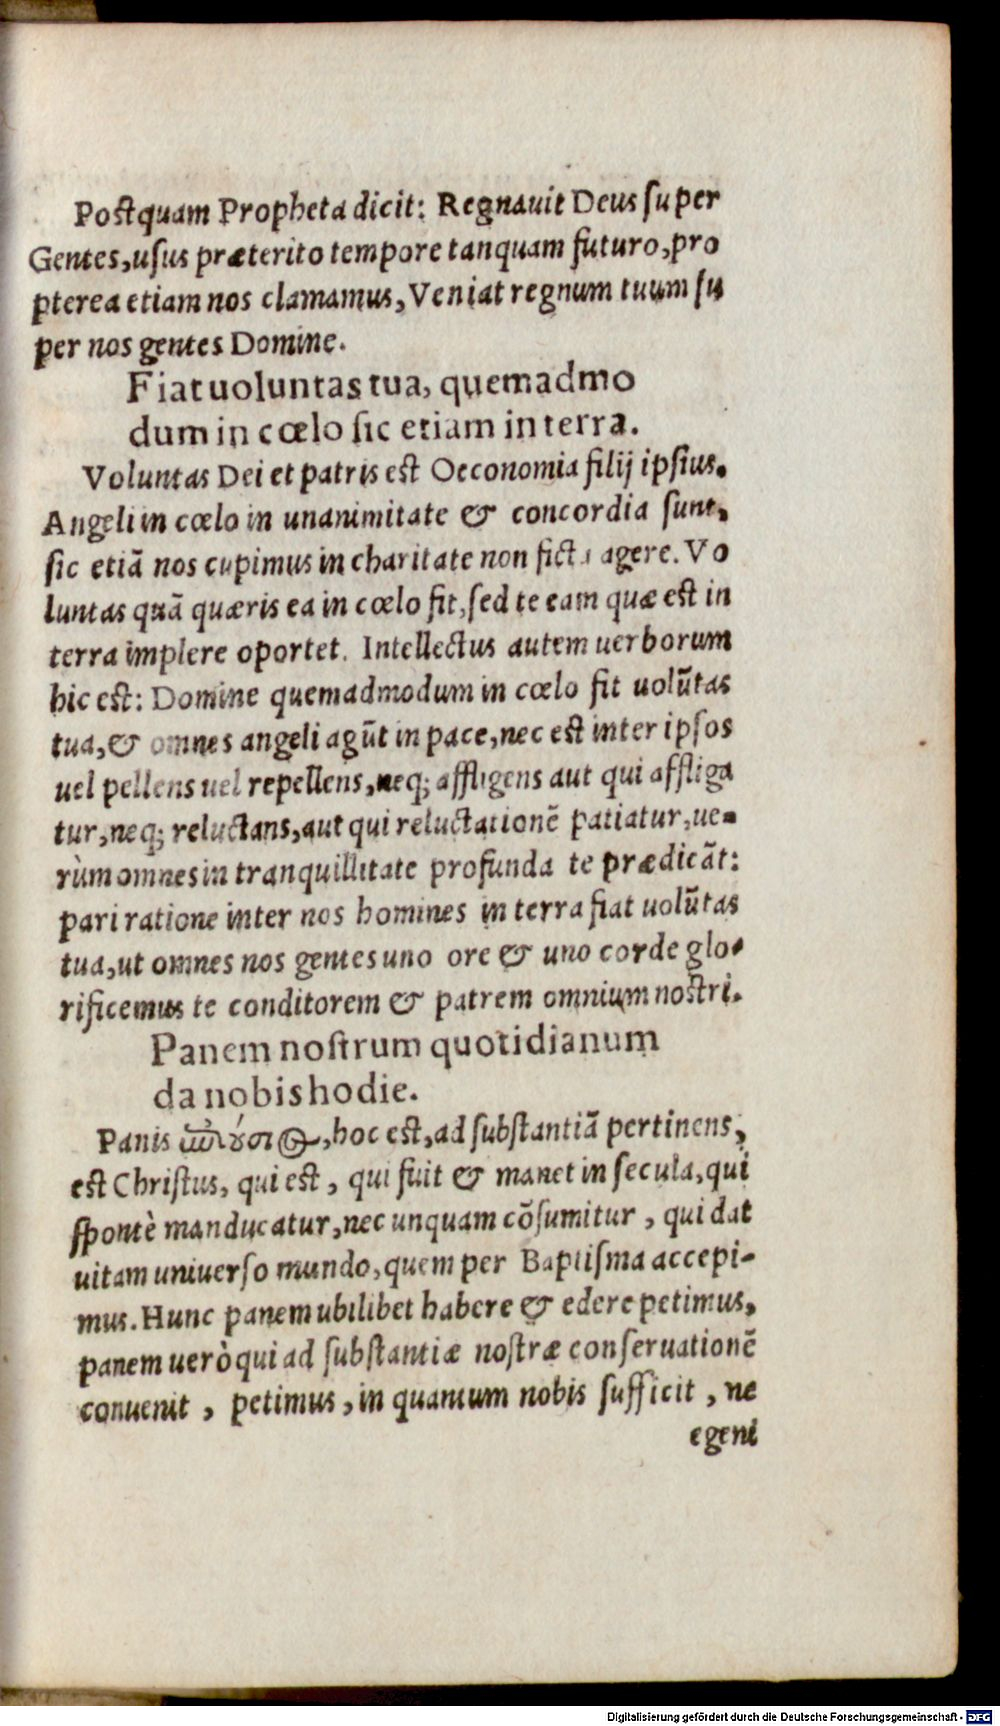 Postquam Propheta dicit: Regnauit Deus super
Gentes, usus præterito tempore tanquam futuro, pro
pterea etiam nos clamamus, Veniat regnum tuum su
per nos gentes Domine.
Fiat uoluntas tua, quemadmo
dum in cœlo sic etiam in terra.
Voluntas Dei et patris est Oeconomia filij ipsius.
Angeli in cœlo in unanimitate & concordia sunt,
sic etiã nos cupimus in charitate non ficta agere. Vo
luntas quã quæris ea in cœlo fit, sed te eam quæ est in
terra implere oportet. Intellectus autem uerborum
hic est: Domine quemadmodum in cœlo fit uolũtas
tua, & omnes angeli agũt in pace, nec est inter ipsos
uel pellens uel repellens, neq; affligens aut qui affliga
tur, neq; reluctans, aut qui reluctationẽ patiatur, ue-
rùm omnes in tranquillitate profunda te prædicãt:
pari ratione inter nos homines in terra fiat uolũtas
tua, ut omnes nos gentes uno ore & uno corde glo-
rificemus te conditorem & patrem omnium nostri.
Panem nostrum quotidianum
da nobis hodie.
Panis ἐπιούσιος, hoc est, ad substantiã pertinens,
est Christus, qui est, qui fuit & manet in secula, qui
spontè manducatur, nec unquam cõsumitur, qui dat
uitam uniuerso mundo, quem per Baptisma accepi-
mus. Hunc panem ubilibet habere & edere petimus,
panem uerò qui ad substantiæ nostræ conseruationẽ
conuenit, petimus, in quantum nobis sufficit, ne
egeni
Digitalisierung gefördert durch die Deutsche Forschungsgemeinschaft - DFG